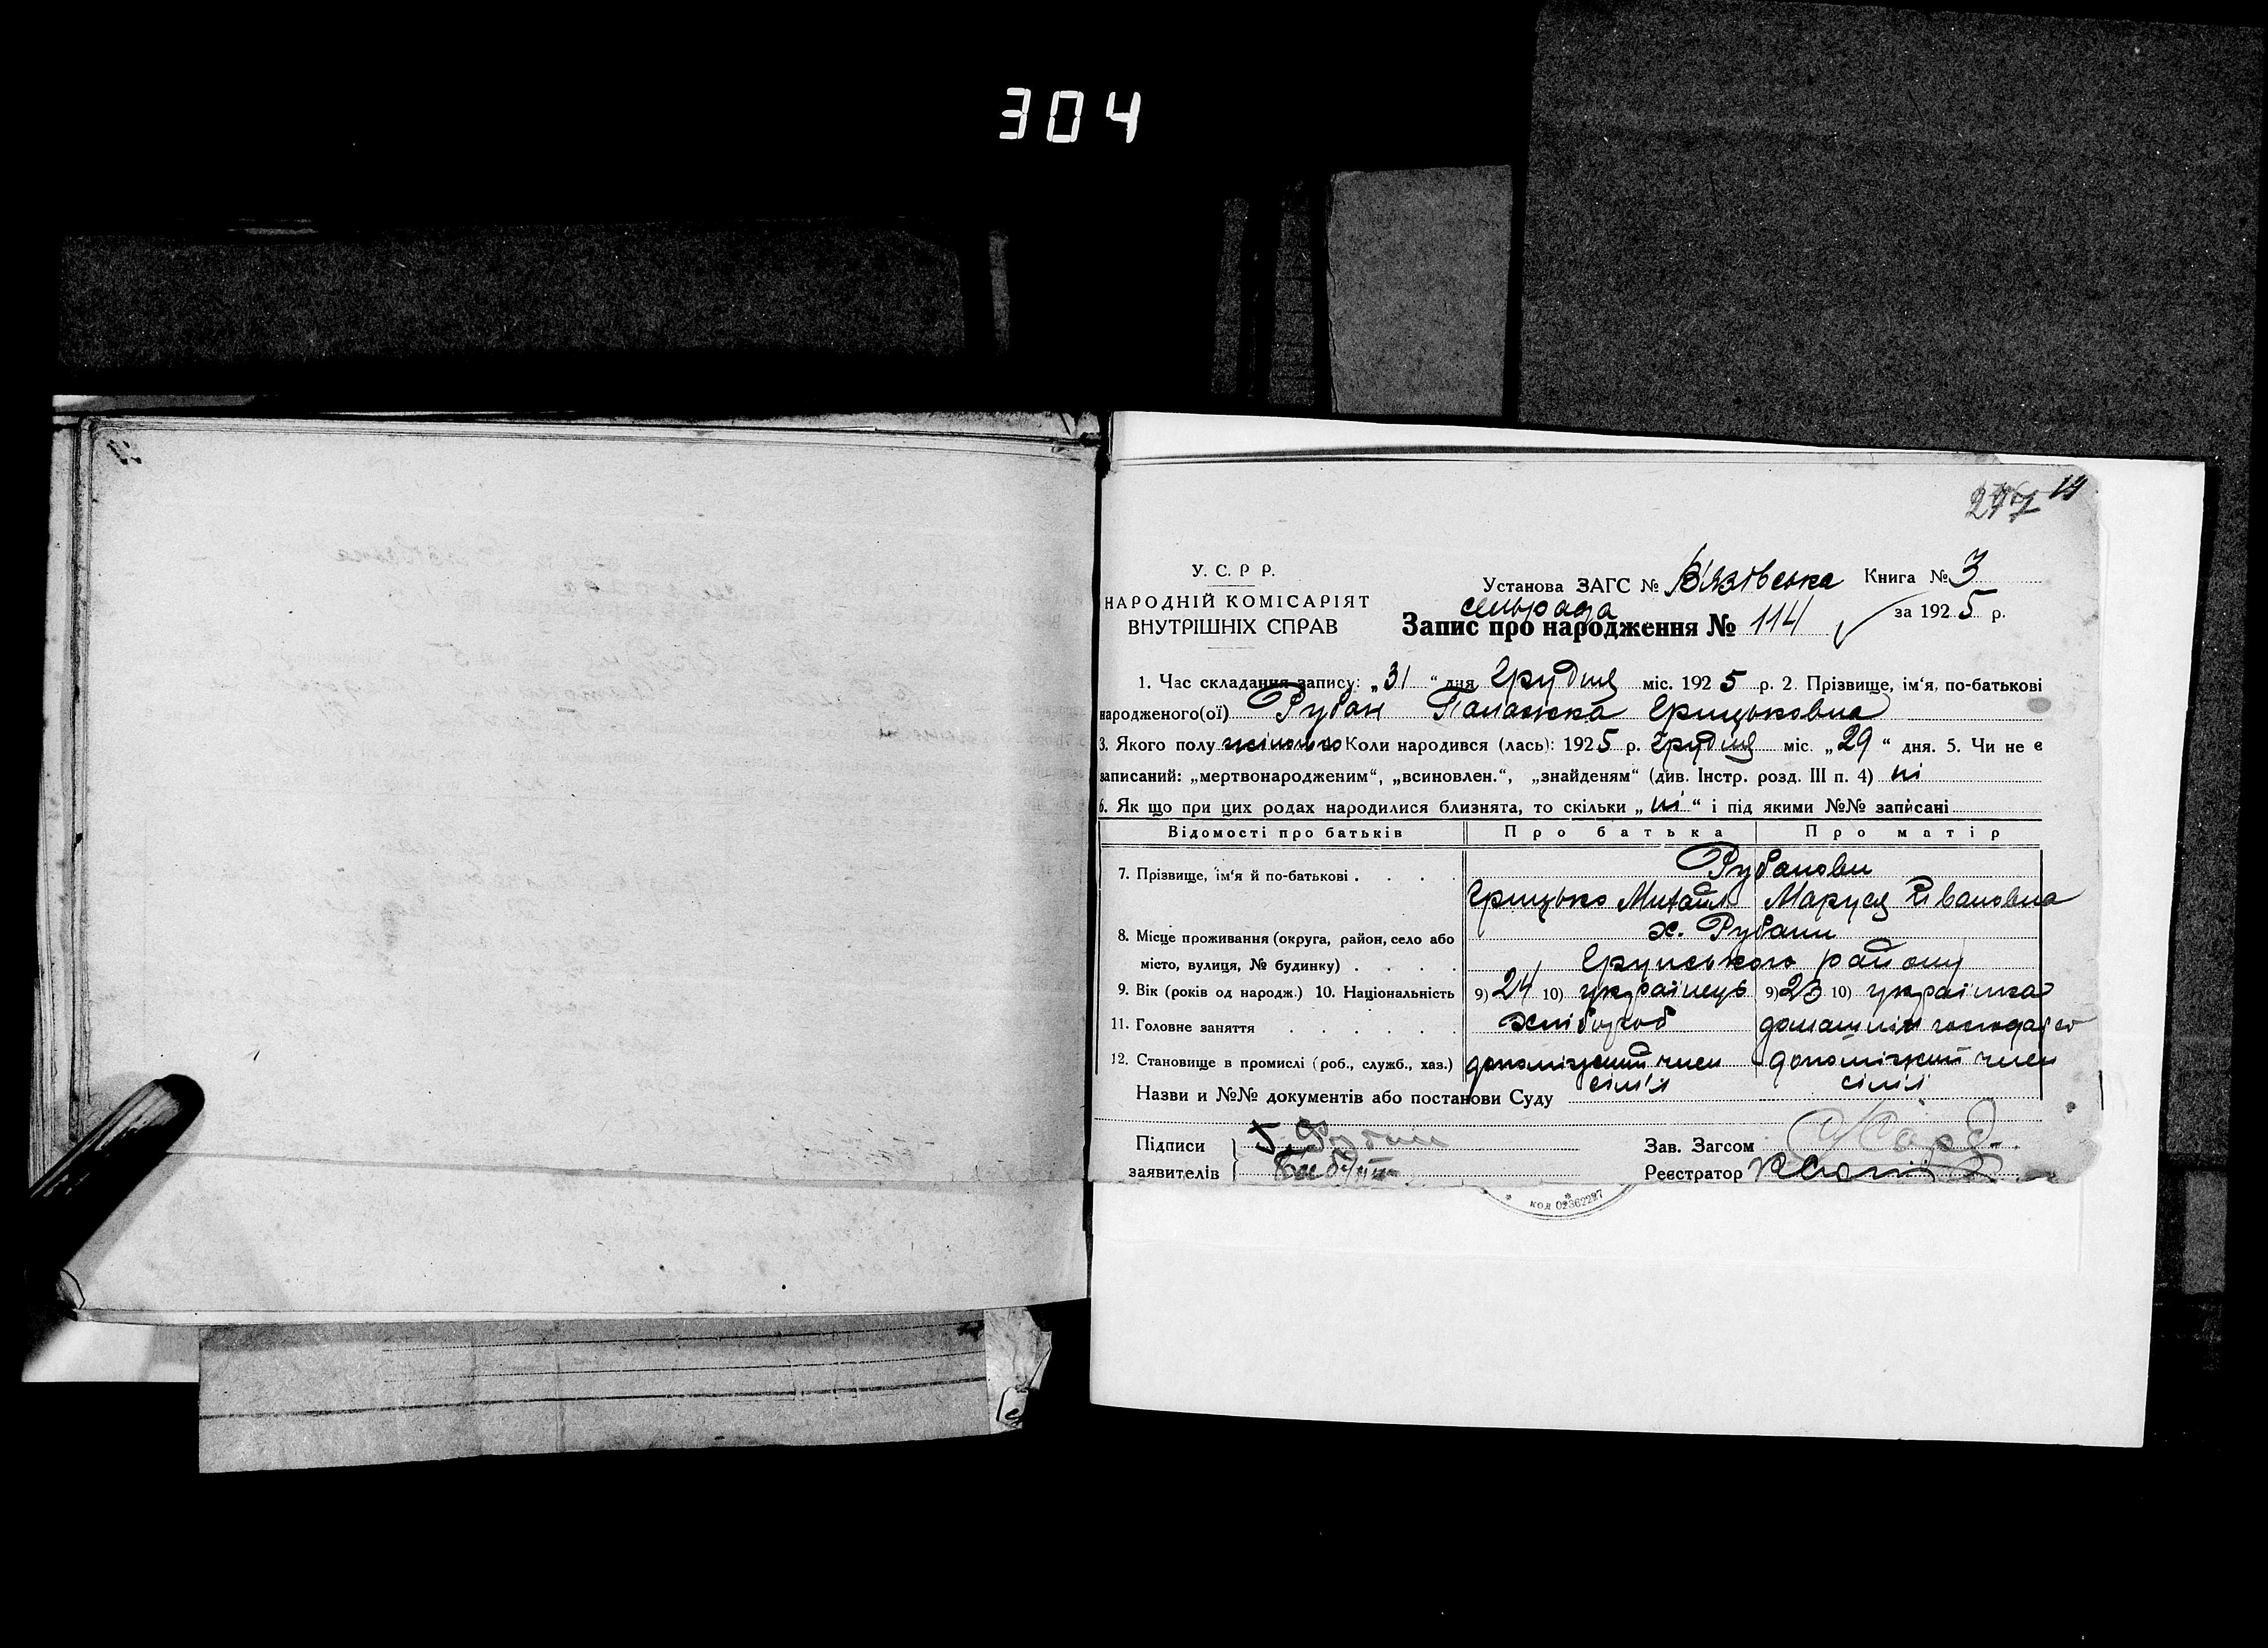 304
У. С. Р Р.
НАРОДНІЙ КОМІСАРІЯТ
ВНУТРІШНІХ СПРАВ
Установа ЗАГС № В'язівська Книга № 3
сельрада
Запис про народження № 114 за 1925 р.
1. Час складання запису: „31“ дня Грудня міс. 1925 р. 2. Прізвище, ім'я, по-батькові
народженого(ої) Рубан Палажка Грицьковна
3. Якого полу жіночого Коли народився (лась): 1925 р. Грудня міс. „29“ дня. 5. Чи не є
записаний: „мертвонародженим“, „всиновлен.“, „знайденям“ (див. Інстр. розд. III п. 4) ні
6. Як що при цих родах народилися близнята, то скільки „ні“ і під якими №№ записані
Відомості про батьків Про батька Про матір
7. Прізвище, ім'я й по-батькові . . . . Рубанови
Грицько Михайл Маруся Ивановна
8. Місце проживання (округа, район, село або х. Рубани
місто, вулиця, № будинку) . . . . Грунського району
9. Вік (років од народж.) 10. Національність 9) 24 10) українець 9) 23 10) українка
11. Головне заняття . . . . . . Хлібороб домашнім
12. Становище в промислі (роб., служб., хаз.) допоміжний член допоміжний член
сімї сімї
Назви и №№ документів або постанови Суду
Підписи Г. Рубан Зав. Загсом
заявителів Реєстратор
код 02362227